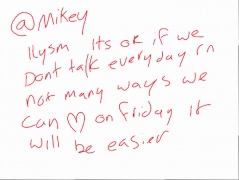 @Mikey
Ilysm Its ok if we
Dont talk everyday rn
not many ways we
can ♡ on friday it
will be easier